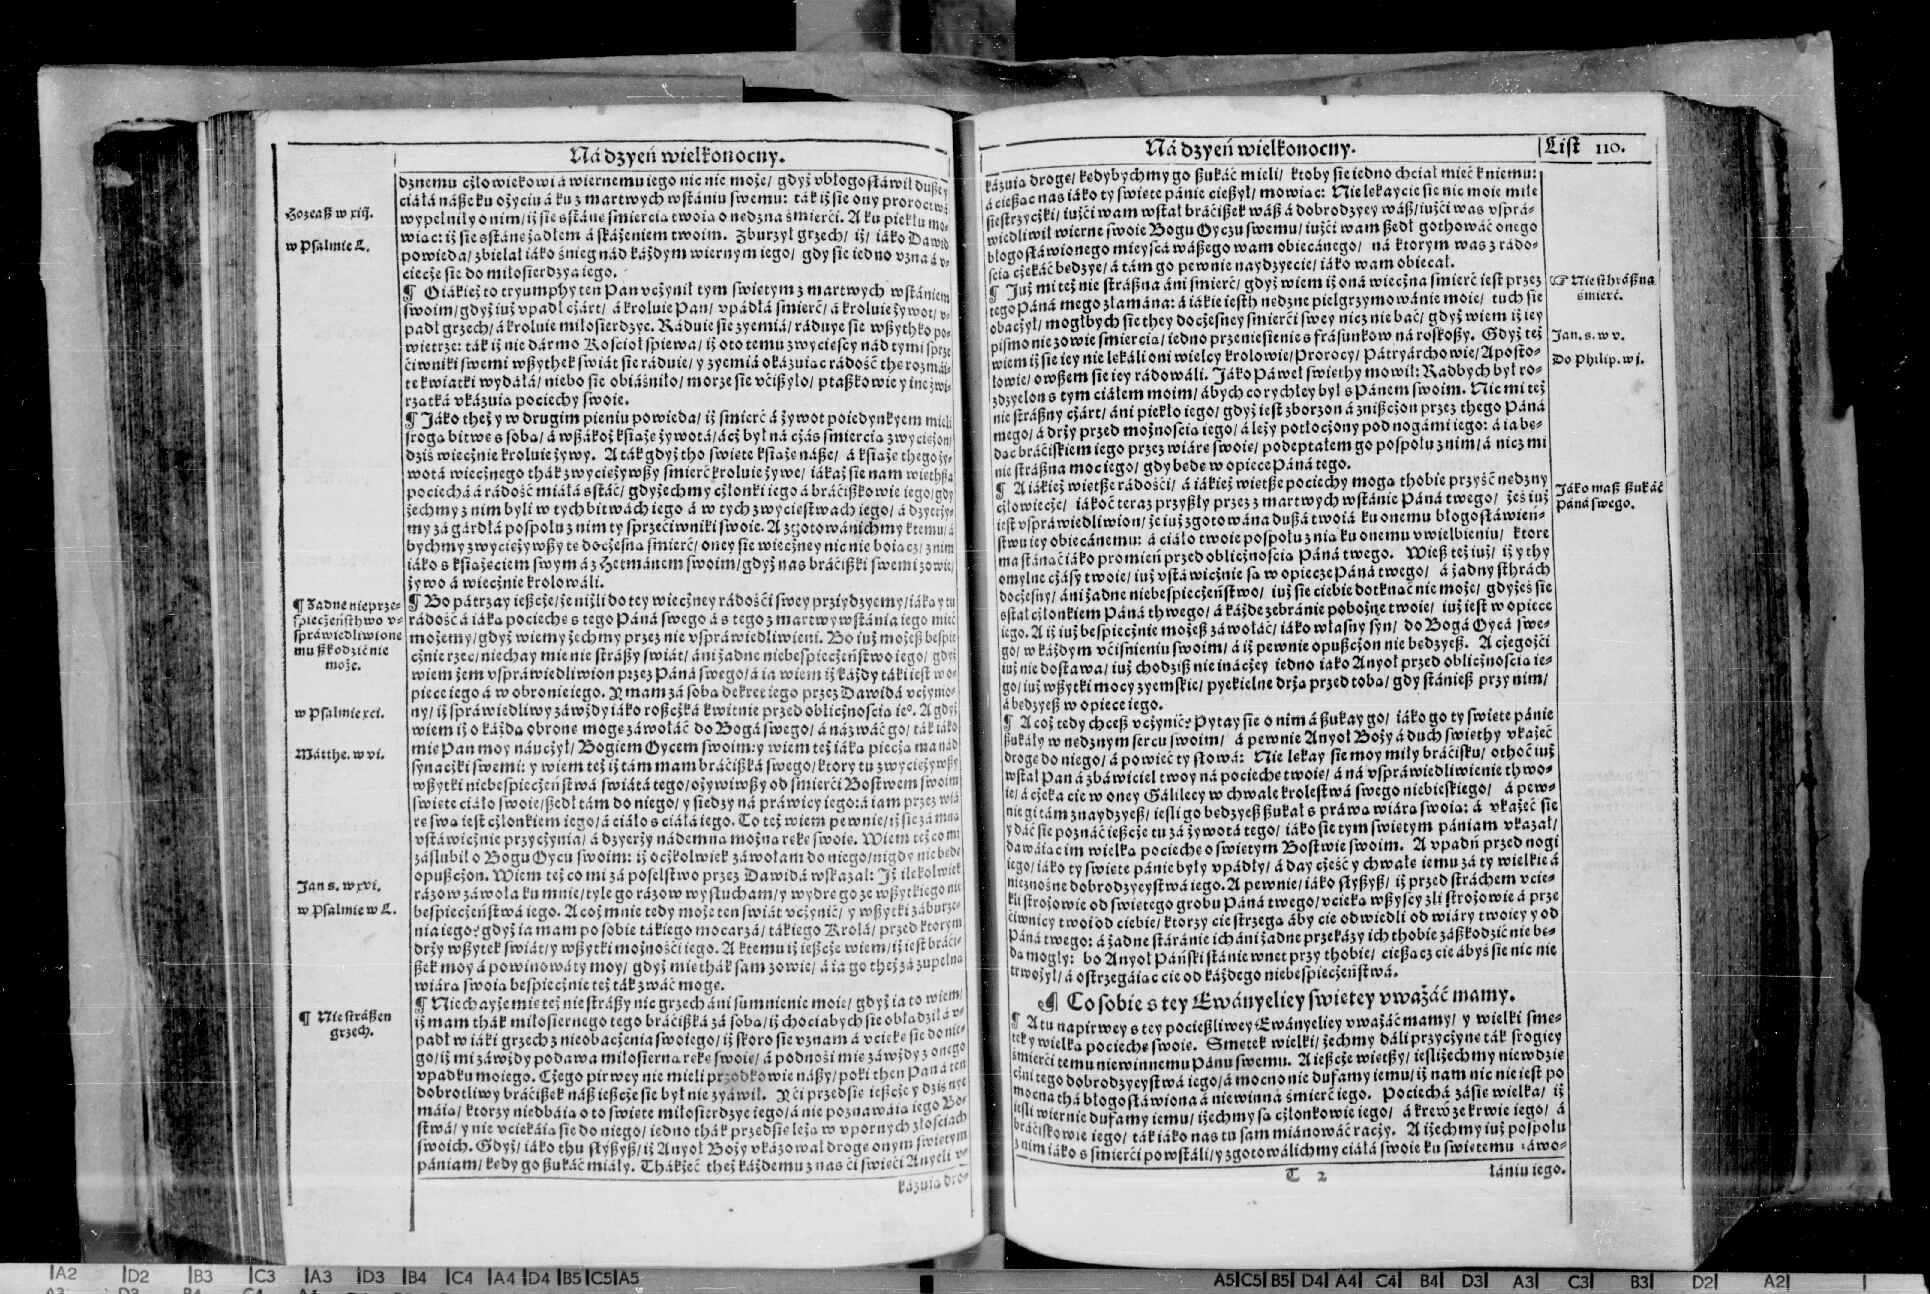 Ná dzyeń wielkonocny.
dznemu człowiekowi á wiernemu iego nic nie może/ gdyż vbłogosłáwił duße y
ciáłá náße ku ożyciu á ku z martwych wstániu swemu: ták iż sie ony proroctwá
Hozeaß w xiij.
wypełniły o nim/ iż sie sstáne śmiercią twoią o nędzna śmierći. A ku piekłu mo-
w Psalmie L.
wiąc: iż sie sstáne żadłem á skáżeniem twoim. Zburzył grzech/ iż/ iáko Dawid
powieda/ zbielał iáko śnieg nád káżdym wiernym iego/ gdy sie iedno vzna á v-
ciecże sie do miłosierdzya iego.
¶ O iákież to tryumphy ten Pan vcżynił tym swietym z martwych wstániem
swoim/ gdyż iuż vpadł cżárt/ á kroluie Pan/ vpádłá śmierć/ á kroluie żywot/ v-
padł grzech/ á kroluie miłosierdzye. Ráduie sie zyemiá/ ráduye sie wßythko po-
wietrze: ták iż nie dármo Kościoł spiewa/ iż oto temu zwyciescy nád tymi sprze
ćiwniki swemi wßythek świát sie ráduie/ y zyemia okázuiąc rádość the rozmái-
te kwiatki wydáłá/ niebo sie obiáśniło/ morze sie vcißyło/ ptaßkowie y ine zwi-
rzątká vkázuia pociechy swoie.
¶ Jáko theż y w drugim pieniu powieda/ iż śmierć á żywot poiedynkyem mieli
sroga bitwe s soba/ á wßákoż ksiaże żywotá/ ácż był ná cżás śmiercia zwyciężon/
dziś wiecżnie kroluie żywy. A ták gdyż tho swiete ksiaże náße/ á ksiaże thego ży-
wotá wiecżnego thák zwyciężywßy śmierć kroluie żywe/ iákaż sie nam wiethßa
pociechá á rádość miáłá sstáć/ gdyżechmy cżłonki iego á bráćißkowie iego/ gdy
żechmy z nim byli w tych bitwách iego á w tych zwyciestwách iego/ á dzyerży-
my zá gárdłá pospołu z nim ty sprzećiwniki swoie. A zgotowánichmy k temu/ á
bychmy zwyciężywßy te docżesna śmierć/ oney sie wiecżney nic nie boiącz/ z nim
iáko s ksiażeciem swym á z Hetmánem swoim/ gdyż nas bráćißki swemi zowie/
żywo á wiecżnie krolowáli.
¶ Żadne nieprze-
spiecżeństhwo v-
spráwiedliwione
mu ßkodzić nie
może.
¶ Bo pátrzay ießcże/ że niżli do tey wiecżney rádośći swey przyidzyemy/ iáka y tu
rádość á iáka pocieche s tego Páná swego á s tego z martwywstánia iego mieć
możemy/ gdyż wiemy żechmy przez nie vspráwiedliwieni. Bo iuż możeß bespie
cżnie rzec/ niechay mie nie stráßy świát/ áni żadne niebespiecżeństwo iego/ gdyż
wiem żem vspráwiedliwion przez Páná swego/ á ia wiem iż káżdy táki iest w o-
piece iego á w obronie iego. Y mam zá soba dekret iego przez Dawidá vcżynio-
w Psalmie xci.
ny/ iż spráwiedliwy záwżdy iáko roßcżká kwitnie przed oblicżnoscia ie°. A gdyż
wiem iż o káżda obrone moge záwołáć do Bogá swego/ á názwáć go/ ták iáko
Mátthe. w vi.
mie Pan moy náucżył/ Bogiem Oycem swoim: y wiem też iáka piecża ma nád
synacżki swemi: y wiem też iż tám mam bráćißká swego/ ktory tu zwyciężywßy
wßytki niebespiecżeństwá świátá tego/ ożywiwßy od śmierći Bostwem swoim
swiete ciáło swoie/ ßedł tám do niego/ y siedzy ná práwicy iego: á iam przez wiá
re swa iest cżłonkiem iego/ á ciáło s ciáłá iego. To też wiem pewnie/ iż sie zá mna
vstáwicżnie przycżynia/ á dzyerży nádemna można reke swoie. Wiem też co mi
záslubił o Bogu Oycu swoim: iż ocżkolwiek záwołam do niego/ nigdy nie bede
Jan s. w xvi.
opußcżon. Wiem też co mi zá poselstwo przez Dawidá wskazał: Iż ilekolwiek
w Psalmie w L.
rázow záwoła ku mnie/ tyle go rázow wysłucham/ y wydre go ze wßytkiego nie
bespiecżeństwá iego. A coż mnie tedy może ten świát vcżynić/ y wßytki záburze-
nia iego? gdyż ia mam po sobie tákiego mocarzá/ tákiego Krolá/ przed ktorym
drży wßytek świát/ y wßytki możnośći iego. A k temu iż ießcże wiem/ iż iest bráći-
ßek moy á powinowáty moy/ gdyż mie thák sam zowie/ á ia go theż zá zupełna
wiára swoia bespiecżnie też ták zwáć moge.
¶ Nie stráßen
grzech.
¶ Niechayże mie też nie stráßy nic grzech áni sumnienie moie/ gdyż ia to wiem/
iż mam thák miłosiernego tego bráćißká zá soba/ iż chociabych sie obłądziłá v-
padł w iáki grzech z nieobacżenia swoiego/ iż skoro sie vznam á vcieke sie do nie-
go/ iż mi záwżdy podawa miłosierna reke swoie/ á podnośi mie záwżdy z onego
vpadku moiego. Cżego pirwey nie mieli przodkowie náßy/ poki then Pan á ten
dobrotliwy bráćißek náß ießcże sie był nie zyáwił. Yći przedsie ießcże y dziś nye
máia/ ktorzy niedbáia o to swiete miłosierdzye iego/ á nie poznawáia iego Bo-
stwá/ y nie vciekáia sie do niego/ iedno thák przedsie leża w vpornych złośćiách
swoich. Gdyż/ iáko thu słyßyß/ iż Anyoł Boży vkázował droge onym swietym
pániam/ kedy go ßukáć miáły. Thákżeć theż káżdemu z nas ći swieći Anyeli v-
kázuia dro-
Ná dzyeń wielkonocny.
List 110.
kázuia droge/ kedybychmy go ßukáć mieli/ ktoby sie iedno chciał mieć k niemu:
á cießac nas iáko ty swiete pánie cießył/ mowiac: Nie lekaycie sie nic moie miłe
siestrzycżki/ iużći wam wstał bráćißek wáß á dobrodzyey wáß/ iużći was vsprá-
wiedliwił wierne swoie Bogu Oyczu swemu/ iużći wam ßedł gothowáć onego
błogosłáwionego mieyscá wáßego wam obiecánego/ ná ktorym was z rádo-
ścia cżekáć bedzye/ á tám go pewnie naydzyecie/ iáko wam obiecał.
☞ Nie sthráßna
śmierć.
¶ Już mi też nie stráßna áni śmierć/ gdyż wiem iż oná wiecżna śmierć iest przez
tego Páná mego złamána: á iákie iesth nedzne pielgrzymowánie moie/ tuch sie
obacżył/ mogłbych sie they docżesney śmierći swey nicz nie bać/ gdyż wiem iż iey
Jan. s. w v.
pismo nie zowie śmiercia/ iedno przeniesienie s frásunkow ná roskoßy. Gdyż też
Do Philip. w j.
wiem iż sie iey nie lekáli oni wielcy krolowie/ Prorocy/ Pátryárchowie/ Aposto-
łowie/ owßem sie iey rádowáli. Jáko Páweł swiethy mowił: Radbych był ro-
zdzyelon s tym ciáłem moim/ ábych co rychley był s Pánem swoim. Nic mi też
nie stráßny cżárt/ áni piekło iego/ gdyż iest zborzon á znißcżon przez thego Páná
mego/ á drży przed możnoscia iego/ á leży potłocżony pod nogámi iego: á ia be-
dac bráćißkiem iego przez wiáre swoie/ podeptałem go pospołu z nim/ á nicz mi
nie stráßna moc iego/ gdy bede w opiece Páná tego.
Jáko maß ßukáć
Páná swego.
¶ A iákież wietße rádośći/ á iákież wietße pociechy moga thobie przyść nedzny
cżłowiecże/ iákoć teraz przyßły przez z martwych wstánie Páná twego/ żeś iuż
iest vspráwiedliwion/ że iuż zgotowána dußá twoiá ku onemu błogosłáwień-
stwu iey obiecánemu: á ciáło twoie pospołu z nia ku onemu vwielbieniu/ ktore
ma stánąć iáko promień przed oblicżnoscia Páná twego. Wieß też iuż/ iż y thy
omylne cżásy twoie/ iuż vstáwicżnie sa w opiecze Páná twego/ á żadny sthrách
docżesny/ áni żadne niebespiecżeństwo/ iuż sie ciebie dotknąć nie może/ gdyżeś sie
sstał cżłonkiem Páná thwego/ á káżde zebránie pobożne twoie/ iuż iest w opiece
iego. A iż iuż bespiecżnie możeß záwołáć/ iáko własny syn/ do Bogá Oycá swe-
go/ w káżdym vćiśnieniu swoim/ á iż pewnie opußcżon nie bedzyeß. A cżegożći
iuż nie dostawa/ iuż chodziß nie inácżey iedno iáko Anyoł przed oblicżnoscia ie-
go/ iuż wßytki mocy zyemskie/ pyekielne drża przed toba/ gdy stánieß przy nim/
á bedzyeß w opiece iego.
¶ A coż tedy chceß vcżynić? Pytay sie o nim á ßukay go/ iáko go ty swiete pánie
ßukáły w nedznym sercu swoim/ á pewnie Anyoł Boży á duch swiethy vkażeć
droge do niego/ á powieć ty słowá: Nie lekay sie moy miły bráćisku/ othoć iuż
wstał Pan á zbáwiciel twoy ná pocieche twoie/ á ná vspráwiedliwienie thwo-
ie/ á cżeka cie w oney Gálileey w chwale krolestwá swego niebieskiego/ á pew-
nie gi tám znaydzyeß/ iesli go bedzyeß ßukał s práwa wiára swoia: á vkażeć sie
y dáć sie poznáć ießcże tu zá żywotá tego/ iáko sie tym swietym pániam vkazał/
dawáiac im wielka pocieche o swietym Bostwie swoim. A vpadń przed nogi
iego/ iáko ty swiete pánie były vpádły/ á day cżeść y chwałe iemu zá ty wielkie á
nieznośne dobrodzyeystwá iego. A pewnie/ iáko słyßyß/ iż przed stráchem vcie-
kli strożowie od swietego grobu Páná twego/ vcieka wßyscy zli strożowie á prze
ćiwnicy twoi od ciebie/ ktorzy cie strzega áby cie odwiedli od wiáry twoiey y od
Páná twego: á żadne stáránie ich áni żadne przekázy ich thobie záßkodzić nie be-
da mogły: bo Anyoł Páński stánie wnet przy thobie/ cießacz cie ábyś sie nic nie
trwożył/ á ostrzegáiac cie od káżdego niebespiecżeństwá.
¶ Co sobie s tey Ewányeliey swietey vważáć mamy.
¶ A tu napirwey s tey pocießliwey Ewányeliey vważáć mamy/ y wielki sme-
tek y wielka pocieche swoie. Smetek wielki/ żechmy dáli przycżyne ták srogiey
śmierći temu niewinnemu Pánu swemu. A ießcże wietßy/ iesliżechmy niewdzie
cżni tego dobrodzyeystwá iego/ á mocno nie dufamy iemu/ iż nam nic nie iest po
mocna thá błogosłáwiona á niewinna śmierć iego. Pociechá zásie wielka/ iż
iesli wiernie dufamy iemu/ iżechmy sa cżłonkowie iego/ á krew ze krwie iego/ á
bráćißkowie iego/ ták iáko nas tu sam miánowáć racży. A iżechmy iuż pospołu
z nim iáko s śmierći powstáli/ y zgotowálichmy ciáłá swoie ku swietemu záwo-
T 2
łániu iego.